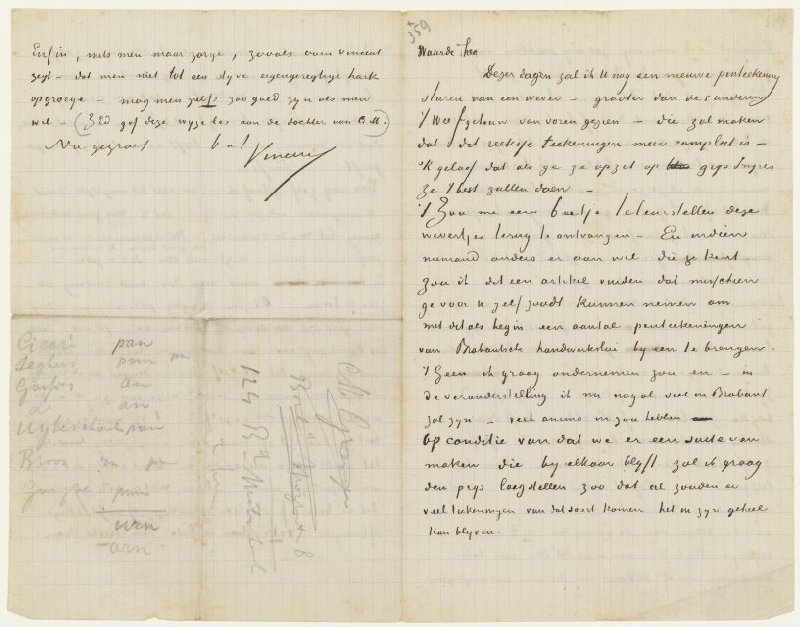 Enfin, mits men maar zorge, zooals oom Vincent
zegt – dat men niet tot een styve eigengeregtige hark
opgroeye – mag men zelfs zoo goed zyn als men
wil – (ZEd gaf deze wyze les aan de dochter van C.M.)
Nu gegroet b à t
Vincent
359
Waarde Theo
Dezer dagen zal ik U nog een nieuwe penteekening
sturen van een wever – grooter dan de anderen
't Weefgetouw van voren gezien – die zal maken
dat 't dit reeksje teekeningen meer compleet is –
ik geloof dat als ge ze opzet op grys Ingres
ze 't best zullen doen –
't Zou me een beetje teleurstellen deze
wevertjes terug te ontvangen – En indien
niemand anders er aan wil die ge kent
zou ik dit een artikel vinden dat misschien
ge voor U zelf zoudt kunnen nemen om
met dit als begin een aantal penteekeningen
van Brabantsche handwerkslui by een te brengen.
't Geen ik graag ondernemen zou en – in
de veronderstelling ik nu nogal veel in Brabant
zal zyn – veel animo in zou hebben
Op conditie van dat we er een suite van
maken die by elkaar blyft zal ik graag
den prys laag stellen zoo dat al zouden er
veel teekeningen van dat soort komen het in zyn geheel
kan blyven.
pan
an
an
pan
pan
124
8